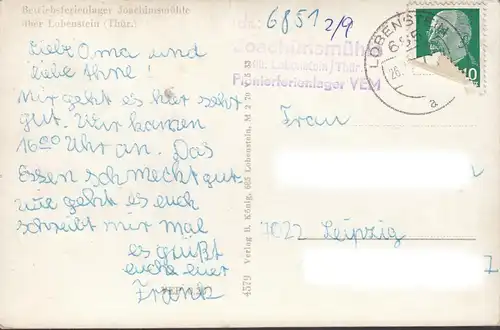 Betriebsferienlager Joachimsmühle
über Lobenstein (Thür.)
Liebe Oma und
liebe Ahne!
Mir geht es hier sehr
gut. Wir kamen
16⁰⁰ Uhr an. Das
Essen schmeckt gut.
wie geht es euch
schreibt mir mal
es grüßt
euche euer
Frank
4579 Verlag B. König, 685 Lobenstein, M 2 70
6851 2/9
Joachimsmühle
Lobenstein / Thür.
Pionierferienlager VEM
LOBENSTEIN
a
10
Frau
7022 Leipzig
7